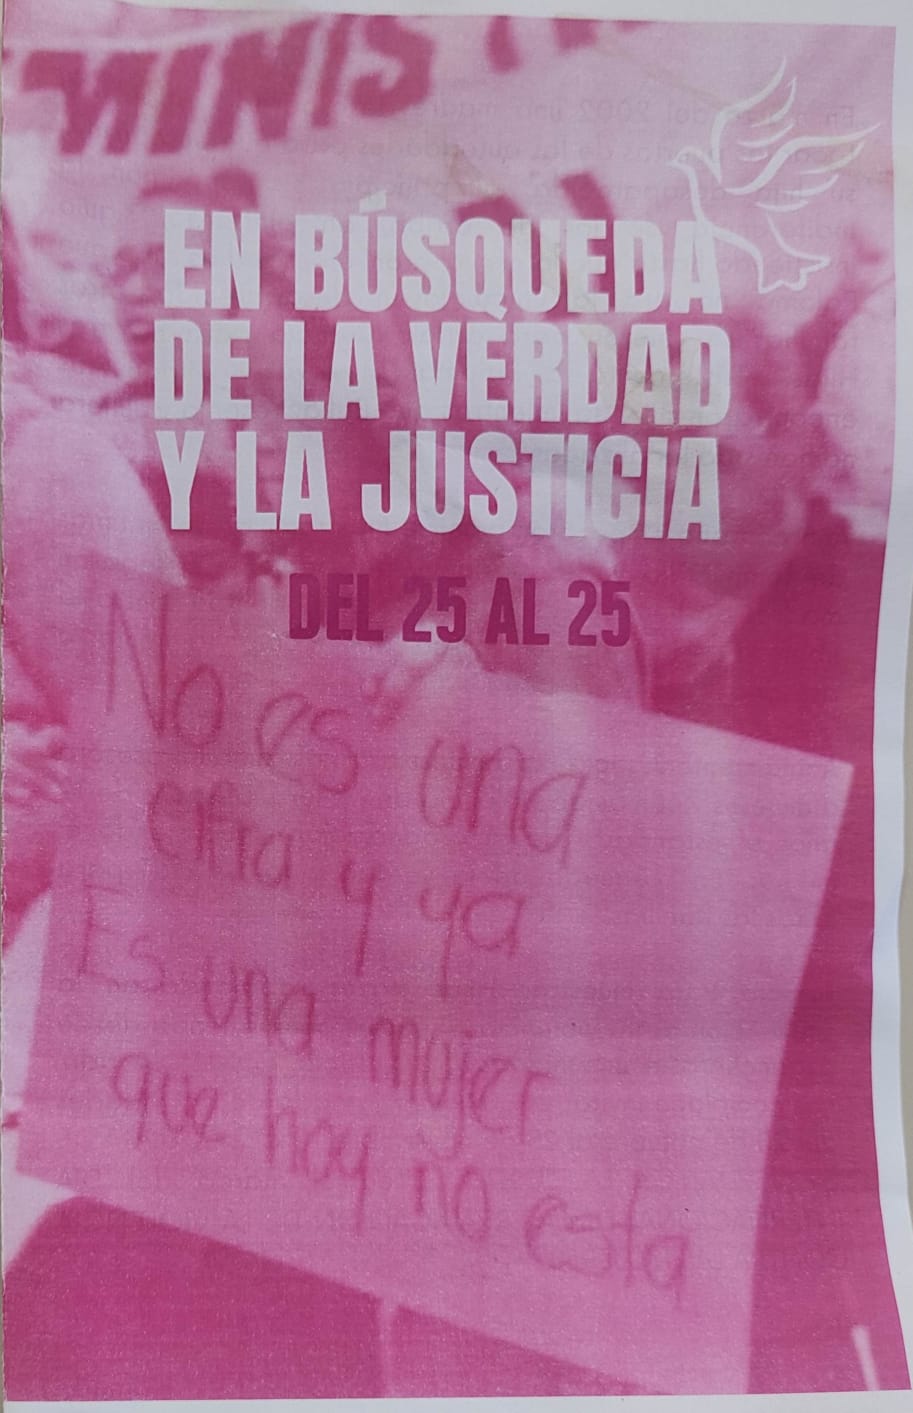 MINIST
EN BÚSQUEDA
DE LA VERDAD
Y LA JUSTICIA
DEL 25 AL 25
No es una
cifra y ya
Es una mujer
que hoy no esta